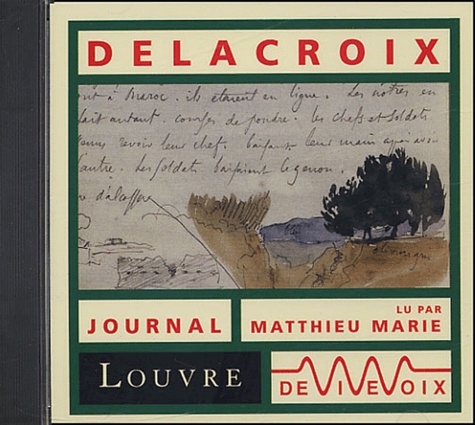 DELACROIX
à Maroc. ils étaient en ligne. Les nôtres en
fait autant. coups de poudre. les chefs et soldats
revoir leur chef. leur main
Les soldats baisaient le genou.
d'alcassar
JOURNAL
LU PAR
MATTHIEU MARIE
LOUVRE
DE VIVE VOIX